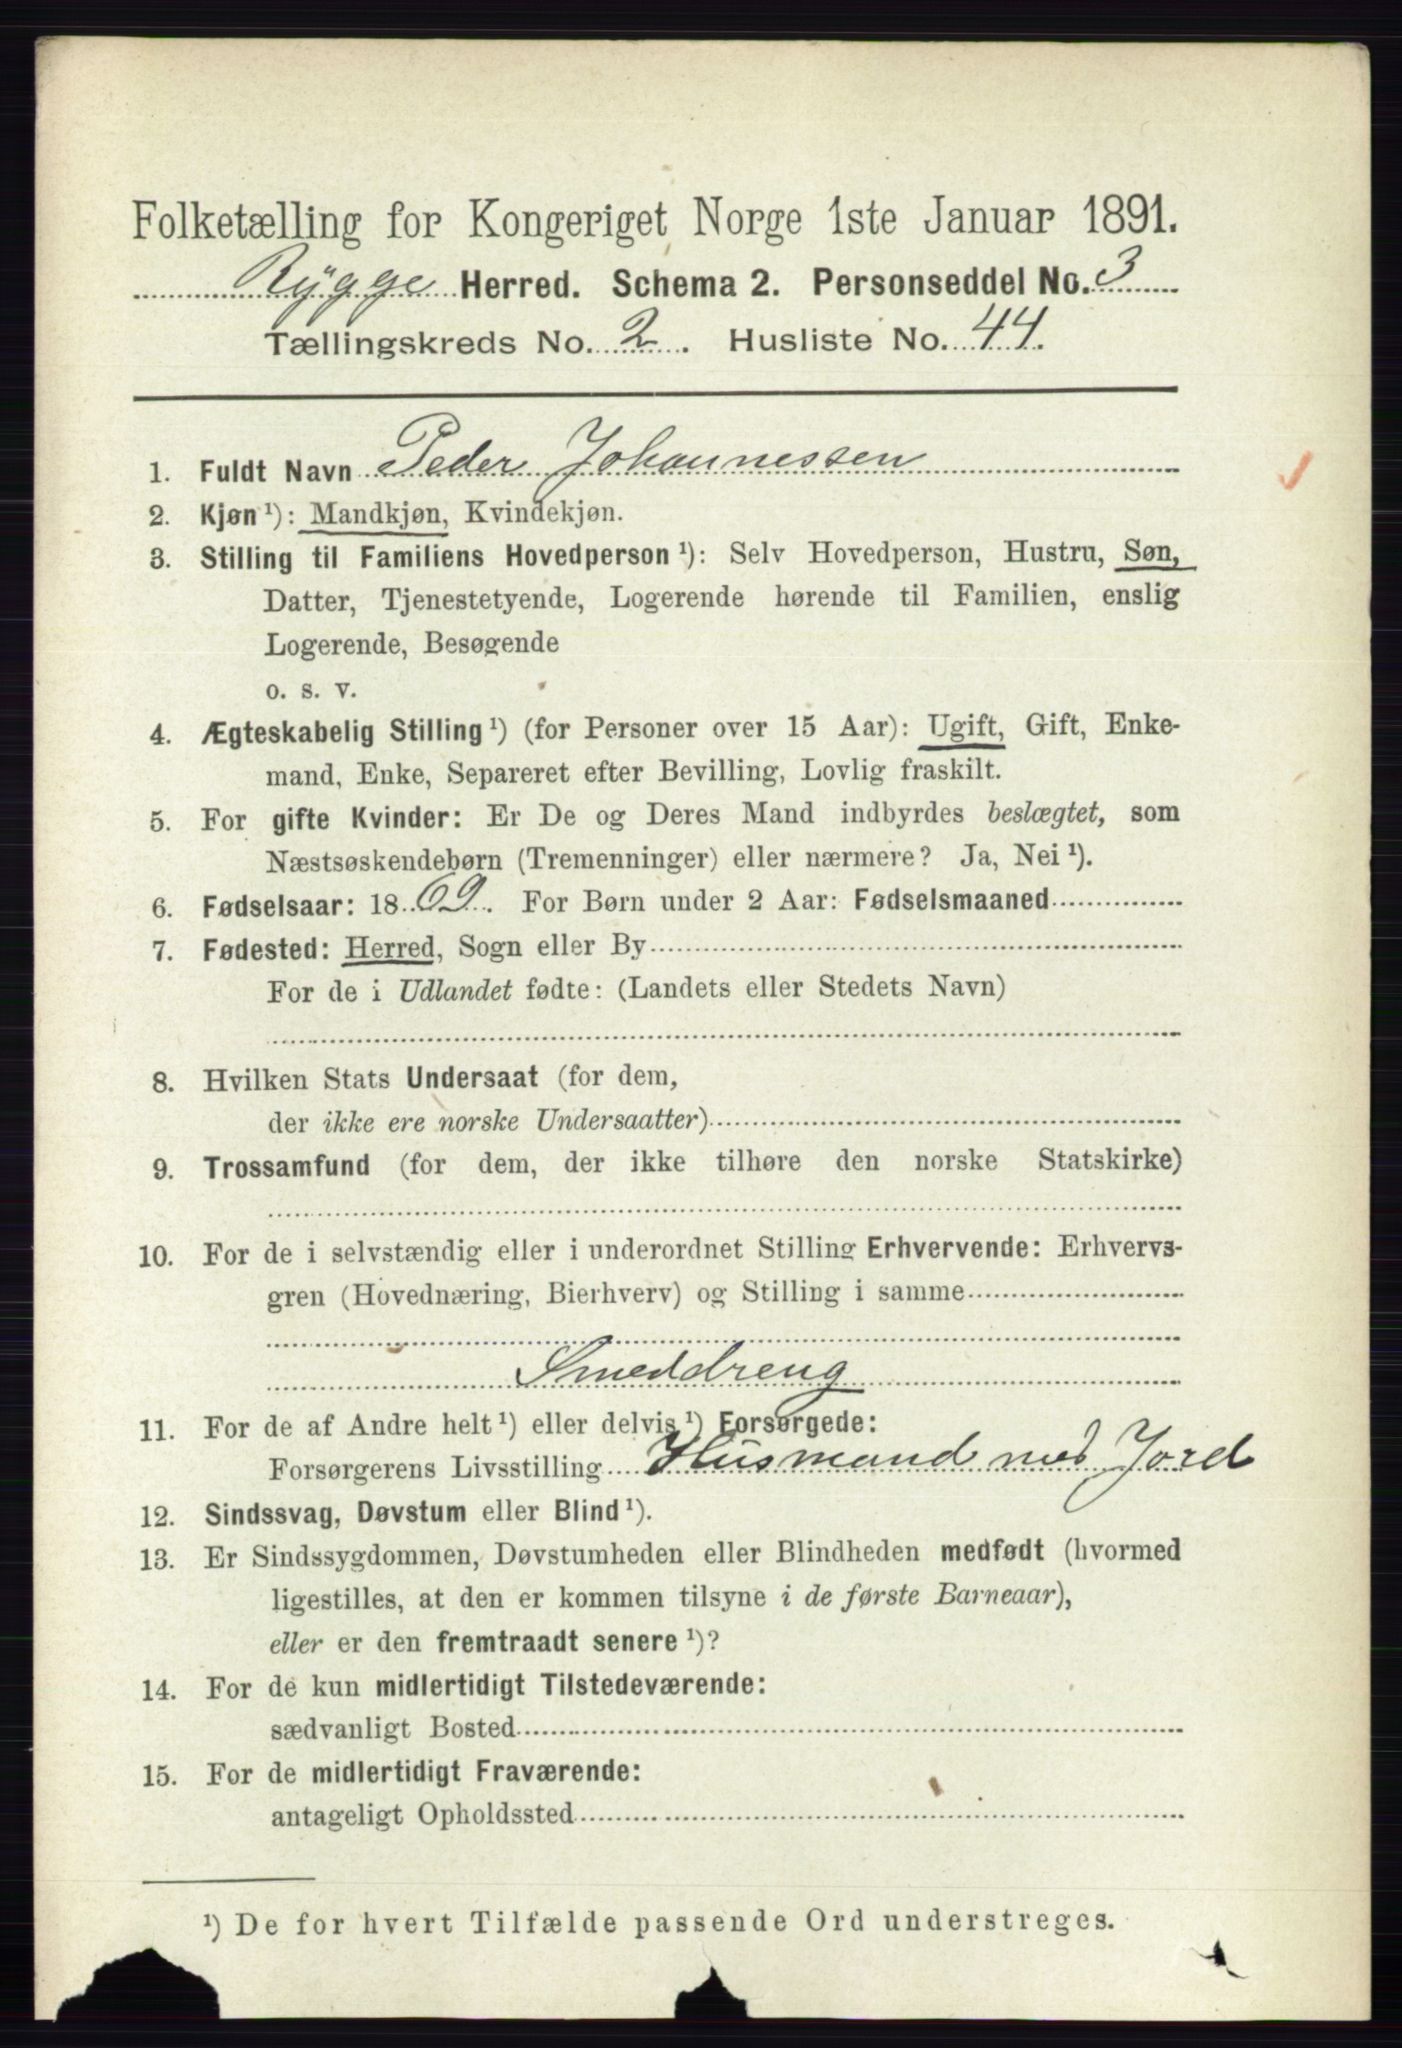 Folketælling for Kongeriget Norge 1ste Januar 1891.
Rygge Herred. Schema 2. Personseddel No. 3
Tællingskreds No. 2. Husliste No. 44.
1. Fuldt Navn Peder Johannessen
2. Kjøn ¹): Mandkjøn, Kvindekjøn.
3. Stilling til Familiens Hovedperson ¹): Selv Hovedperson, Hustru, Søn,
Datter, Tjenestetyende, Logerende hørende til Familien, enslig
Logerende, Besøgende
o. s. v.
4. Ægteskabelig Stilling ¹) (for Personer over 15 Aar): Ugift, Gift, Enke-
mand, Enke, Separeret efter Bevilling, Lovlig fraskilt.
5. For gifte Kvinder: Er De og Deres Mand indbyrdes beslægtet, som
Næstsøskendebørn (Tremenninger) eller nærmere? Ja, Nei ¹).
6. Fødselsaar: 1869. For Børn under 2 Aar: Fødselsmaaned
7. Fødested: Herred, Sogn eller By
For de i Udlandet fødte: (Landets eller Stedets Navn)
8. Hvilken Stats Undersaat (for dem,
der ikke ere norske Undersaatter)
9. Trossamfund (for dem, der ikke tilhøre den norske Statskirke)
10. For de i selvstændig eller i underordnet Stilling Erhvervende: Erhvervs-
gren (Hovednæring, Bierhverv) og Stilling i samme
Smeddreng
11. For de af Andre helt ¹) eller delvis ¹) Forsørgede:
Forsørgerens Livsstilling Husmand med Jord
12. Sindssvag, Døvstum eller Blind ¹).
13. Er Sindssygdommen, Døvstumheden eller Blindheden medfødt (hvormed
ligestilles, at den er kommen tilsyne i de første Barneaar),
eller er den fremtraadt senere ¹)?
14. For de kun midlertidigt Tilstedeværende:
sædvanligt Bosted
15. For de midlertidigt Fraværende:
antageligt Opholdssted
¹) De for hvert Tilfælde passende Ord understreges.